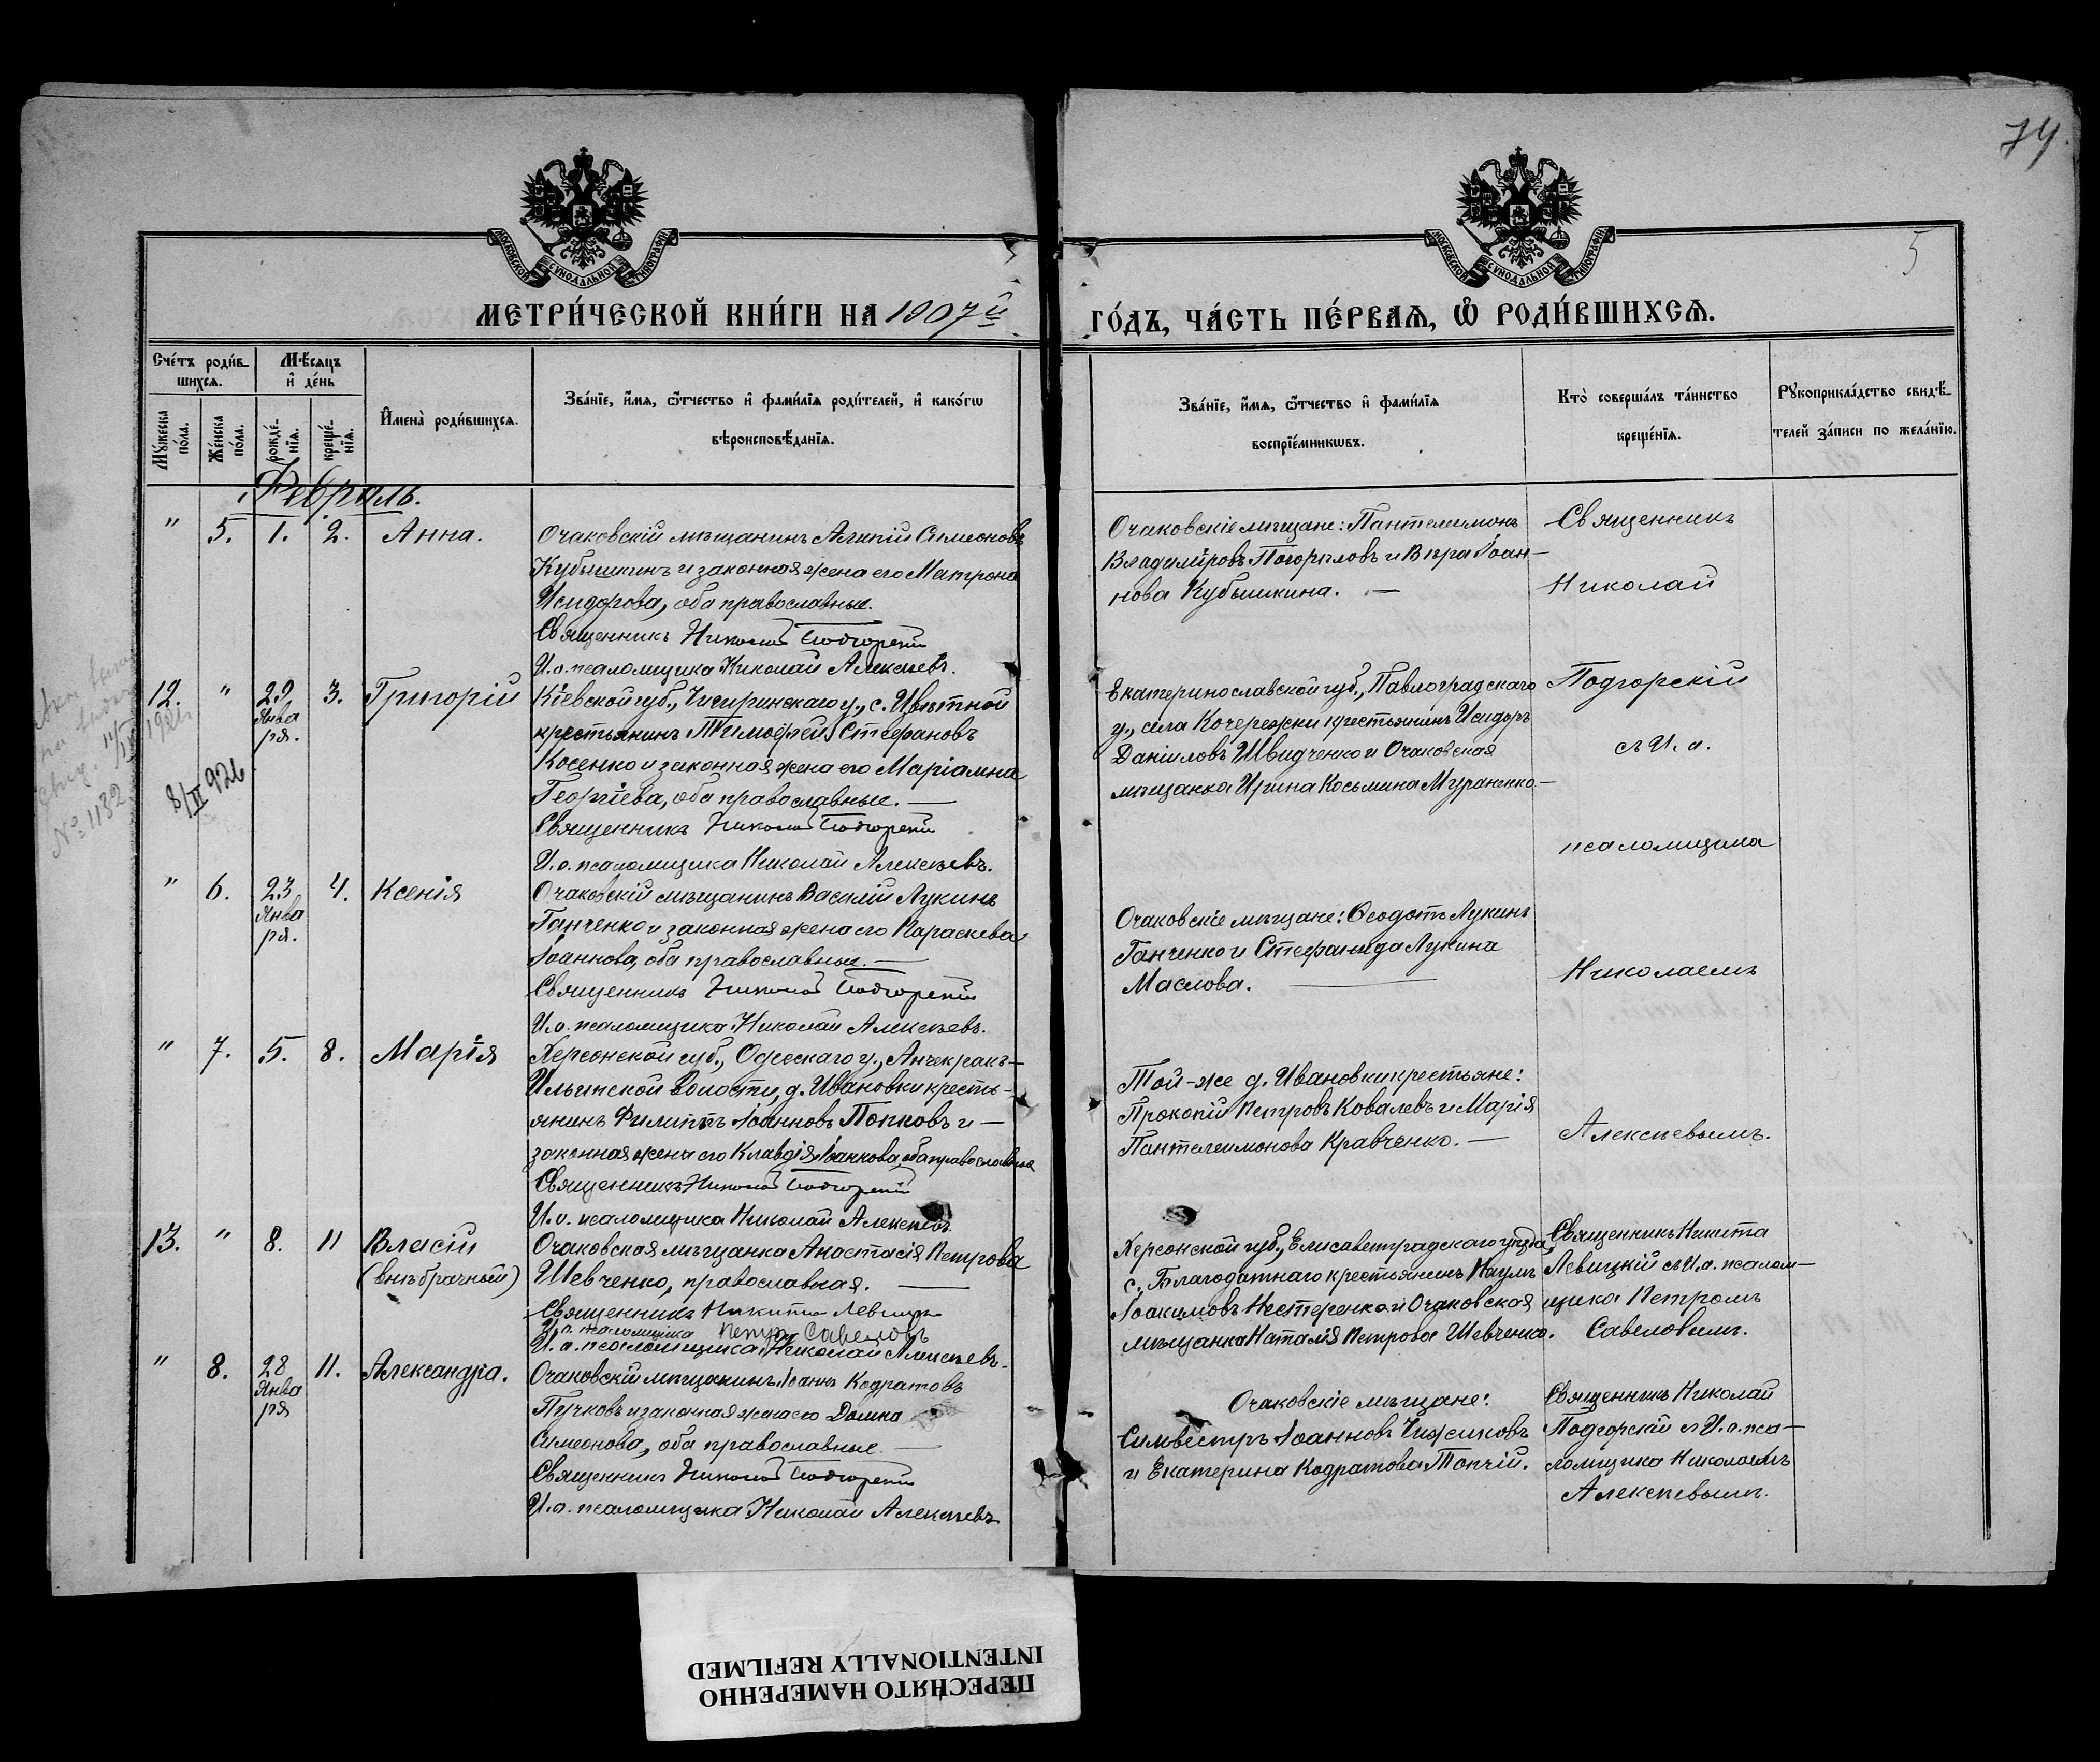 74
5
МОСКОВСКОЙ СѴНОДАЛЬНОЙ ТИПОГРАФІИ
МОСКОВСКОЙ СѴНОДАЛЬНОЙ ТИПОГРАФІИ
МЕТРИ́ЧЕСКОЙ КНИ́ГИ НА 1907й
ГО́ДЪ, ЧА́СТЬ ПЕ́РВАЯ, Ѡ РОДИ́ВШИХСЯ.
Сче́тъ роди́в-
шихся.
Мѣ́сяцъ
и де́нь
Му́жеска по́ла.
Же́нска по́ла.
рожде́-
нія.
креще́-
нія.
Имена̀ роди́вшихся.
Зва́ніе, имя, ѻтчество и фами́лія роди́телей, и како́гω
вѣроисповѣ́данія.
Зва́ніе, имя, ѻтчество и фами́лія
воспріе́мникωвъ.
Кто̀ соверша́лъ та́инство
креще́нія.
Рукоприкла́дство свидѣ́-
телей за́писи по жела́нію.
Февраль.
" 5. 1. 2. Анна.
Очаковскій мѣщанинъ Агапій Симеоновъ
Кубышкинъ и законная жена его Матрона
Исидорова, оба православные.
Священникъ Николай Подгорскій
И. о. псаломщика Николай Алексѣевъ.
Очаковскіе мѣщане: Пантелимонъ
Владиміровъ Погорѣловъ и Вѣра Іоан-
нова Кубышкина. —
Священникъ
Николай
12. " 29 Янва
ря. 3. Григорій
Кіевской губ., Чигиринскаго у., с. Цвѣтной
крестьянинъ Тимофей Стефановъ
Косенко и законная жена его Маріамна
Георгіева, оба православные. —
Священникъ Николай Подгорскій
И. о. псаломщика Николай Алексѣевъ.
Екатеринославской губ., Павлоградскаго
у., села Кочережки крестьянинъ Исидоръ
Даніиловъ Швидченко и Очаковская
мѣщанка Ирина Косьмина Мураненко —
Подгорскій
съ И. о.
псаломщика
№ 1132
8/II 926
" 6. 23 Янва
ря. 4. Ксенія
Очаковскій мѣщанинъ Василій Лукинъ
Ганченко и законная жена его Параскева
Іоаннова, оба православные. —
Священникъ Николай Подгорскій
И. о. псаломщика Николай Алексѣевъ.
Очаковскіе мѣщане: Ѳеодотъ Лукинъ
Ганченко и Стефанида Лукина
Маслова. —
Николаемъ
" 7. 5. 8. Марія
Херсонской губ., Одесскаго у., Анчекракъ-
Ильинской волости, д. Ивановки кресть-
янинъ Филиппъ Іоанновъ Попковъ и —
законная жена его Клавдія Іоаннова, оба православные
Священникъ Николай Подгорскій
И. о. псаломщика Николай Алексѣевъ
Той-же д. Ивановки крестьяне:
Прокопій Петровъ Ковалевъ и Марія
Пантелеимонова Кравченко. —
Алексѣевымъ.
13. " 8. 11 Власій
(внѣбрачный)
Очаковская мѣщанка Анастасія Петрова
Шевченко, православная. —
Священникъ Никита Левицкій
И. о. псаломщика Петръ Савеловъ
И. о. псаломщика Николай Алексѣевъ.
Херсонской губ., Елисаветградскаго уѣзда,
с. Благодатнаго крестьянинъ Наумъ
Іоакимовъ Нестеренко и Очаковская
мѣщанка Наталія Петрова Шевченко.
Священникъ Никита
Левицкій съ И. о. псалом-
щика Петромъ
Савеловымъ.
" 8. 28 Янва
ря 11. Александра.
Очаковскій мѣщанинъ Іоаннъ Кодратовъ
Пучковъ и законная жена его Домна
Симеонова, оба православные —
Священникъ Николай Подгорскій
И. о. псаломщика Николай Алексѣевъ
Очаковскіе мѣщане:
Сильвестръ Іоанновъ Чижиковъ
и Екатерина Кодратова Топчій.
Священникъ Николай
Подгорскій съ И. о. пса-
ломщика Николаемъ
Алексѣевымъ.
ПЕРЕСНЯТО НАМЕРЕННО
INTENTIONALLY REFILMED